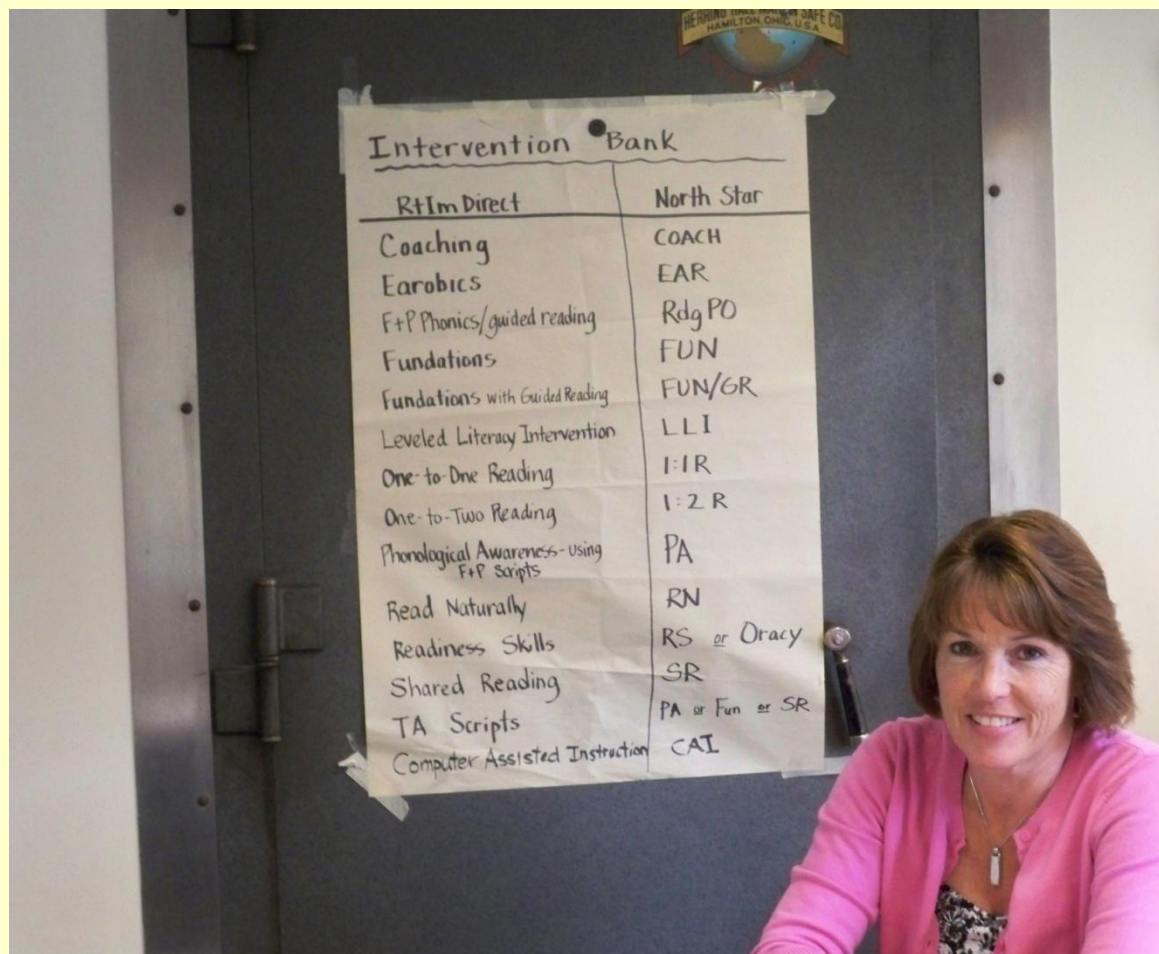 HERRING HALL MARVIN SAFE CO.
HAMILTON, OHIO, U.S.A.
Intervention Bank
RtImDirect North Star
Coaching COACH
Earobics EAR
F+P Phonics/guided reading Rdg PO
Fundations FUN
Fundations with Guided Reading FUN/GR
Leveled Literacy Intervention LLI
One-to-One Reading 1:1R
One-to-Two Reading 1:2 R
Phonological Awareness-using PA
F+P Scripts
Read Naturally RN
Readiness Skills RS or Oracy
Shared Reading SR
TA Scripts PA or Fun or SR
Computer Assisted Instruction CAI